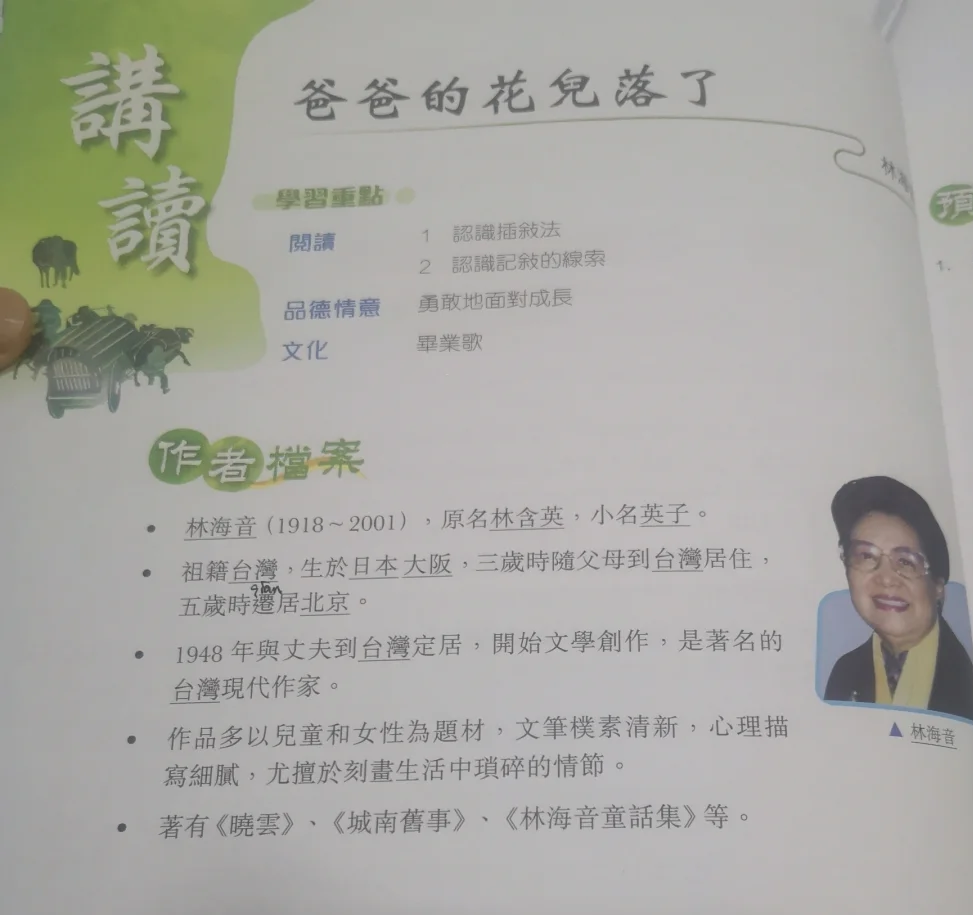 講讀
爸爸的花兒落了
林海
學習重點
預
閱讀 1 認識插敍法
2 認識記敍的線索
1.
品德情意 勇敢地面對成長
文化 畢業歌
作者檔案
• 林海音(1918～2001),原名林含英,小名英子。
• 祖籍台灣,生於日本大阪,三歲時隨父母到台灣居住,
qian
五歲時遷居北京。
• 1948年與丈夫到台灣定居,開始文學創作,是著名的
台灣現代作家。
• 作品多以兒童和女性為題材,文筆樸素清新,心理描
寫細膩,尤擅於刻畫生活中瑣碎的情節。
▲ 林海音
• 著有《曉雲》、《城南舊事》、《林海音童話集》等。